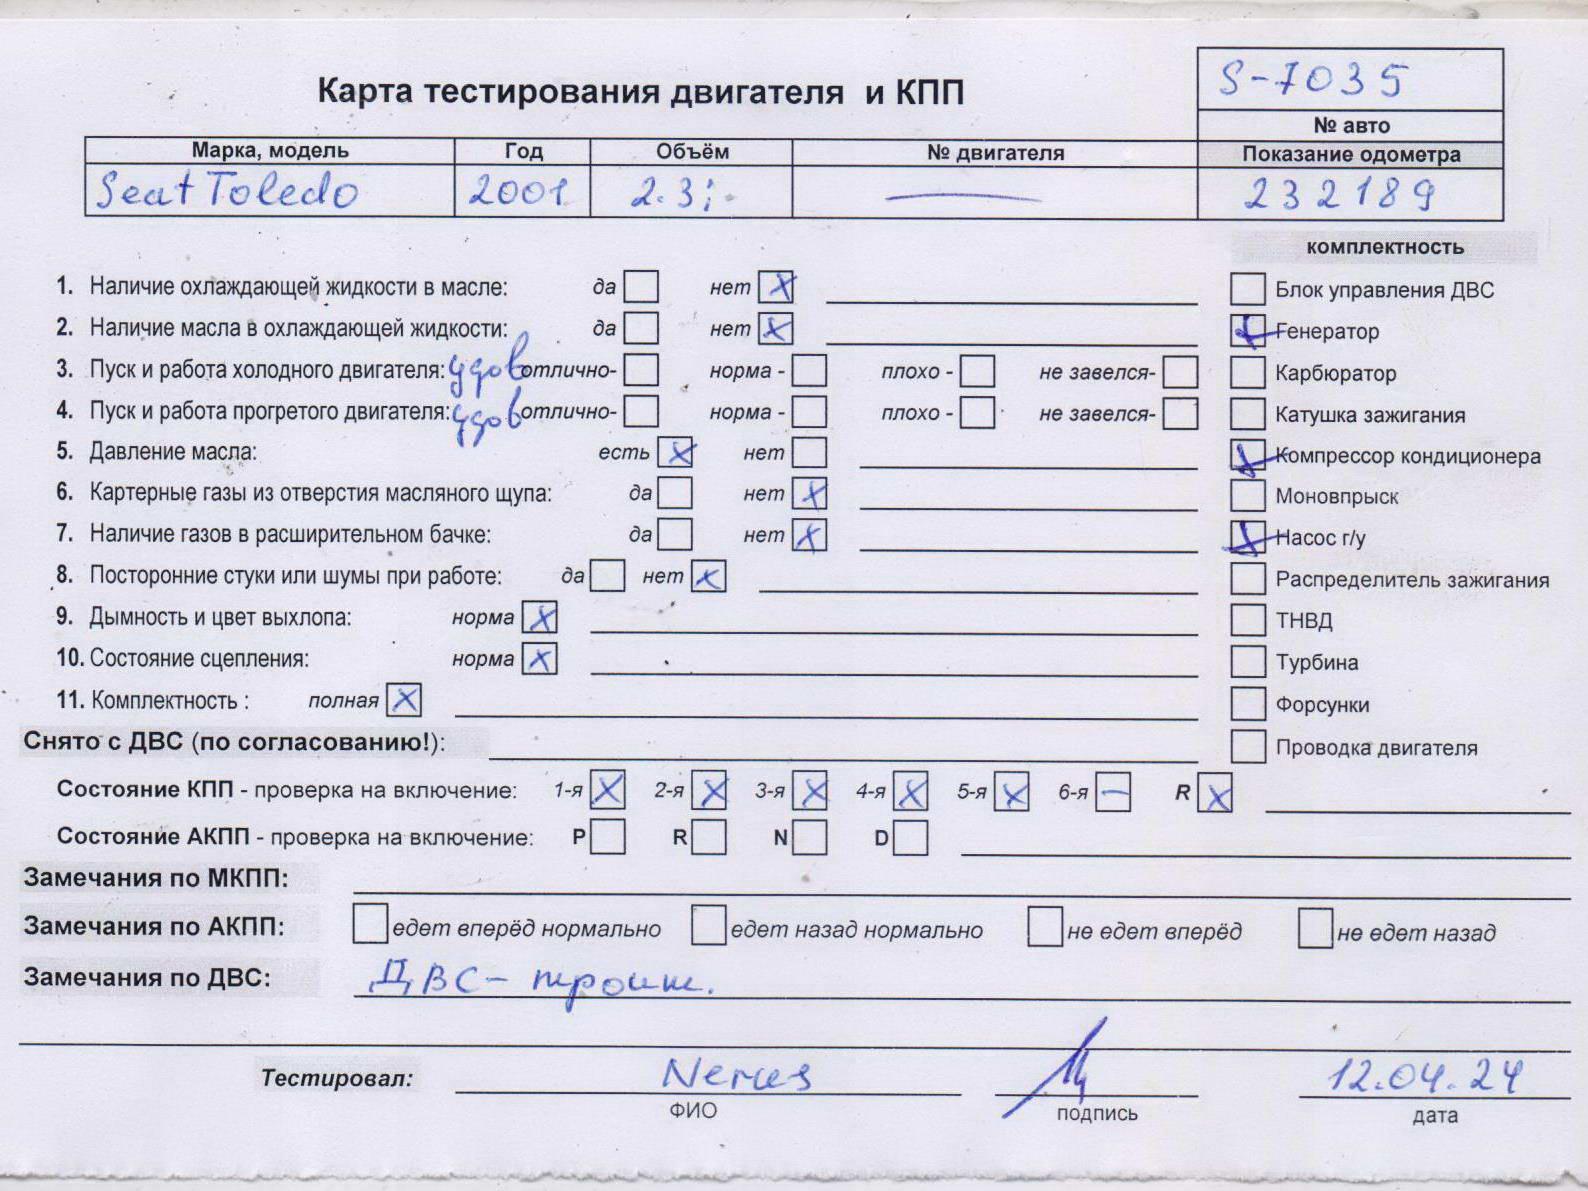 S-7035
Карта тестирования двигателя и КПП
№ авто
Марка, модель Год Объём № двигателя Показание одометра
Seat Toledo 2001 2.3i — 232189
комплектность
1. Наличие охлаждающей жидкости в масле: да нет X
Блок управления ДВС
2. Наличие масла в охлаждающей жидкости: да нет X
Генератор
3. Пуск и работа холодного двигателя: удов отлично- норма - плохо - не завелся-
Карбюратор
4. Пуск и работа прогретого двигателя: удов отлично- норма - плохо - не завелся-
Катушка зажигания
5. Давление масла: есть X нет
Компрессор кондиционера
6. Картерные газы из отверстия масляного щупа: да нет X
Моновпрыск
7. Наличие газов в расширительном бачке: да нет X
Насос г/у
8. Посторонние стуки или шумы при работе: да нет X
Распределитель зажигания
9. Дымность и цвет выхлопа: норма X
ТНВД
10. Состояние сцепления: норма X
Турбина
11. Комплектность : полная X
Форсунки
Снято с ДВС (по согласованию!):
Проводка двигателя
Состояние КПП - проверка на включение: 1-я X 2-я X 3-я X 4-я X 5-я X 6-я — R X
Состояние АКПП - проверка на включение: P R N D
Замечания по МКПП:
Замечания по АКПП: едет вперёд нормально едет назад нормально не едет вперёд не едет назад
Замечания по ДВС: ДВС - троит.
Тестировал: 12.04.24
ФИО подпись дата